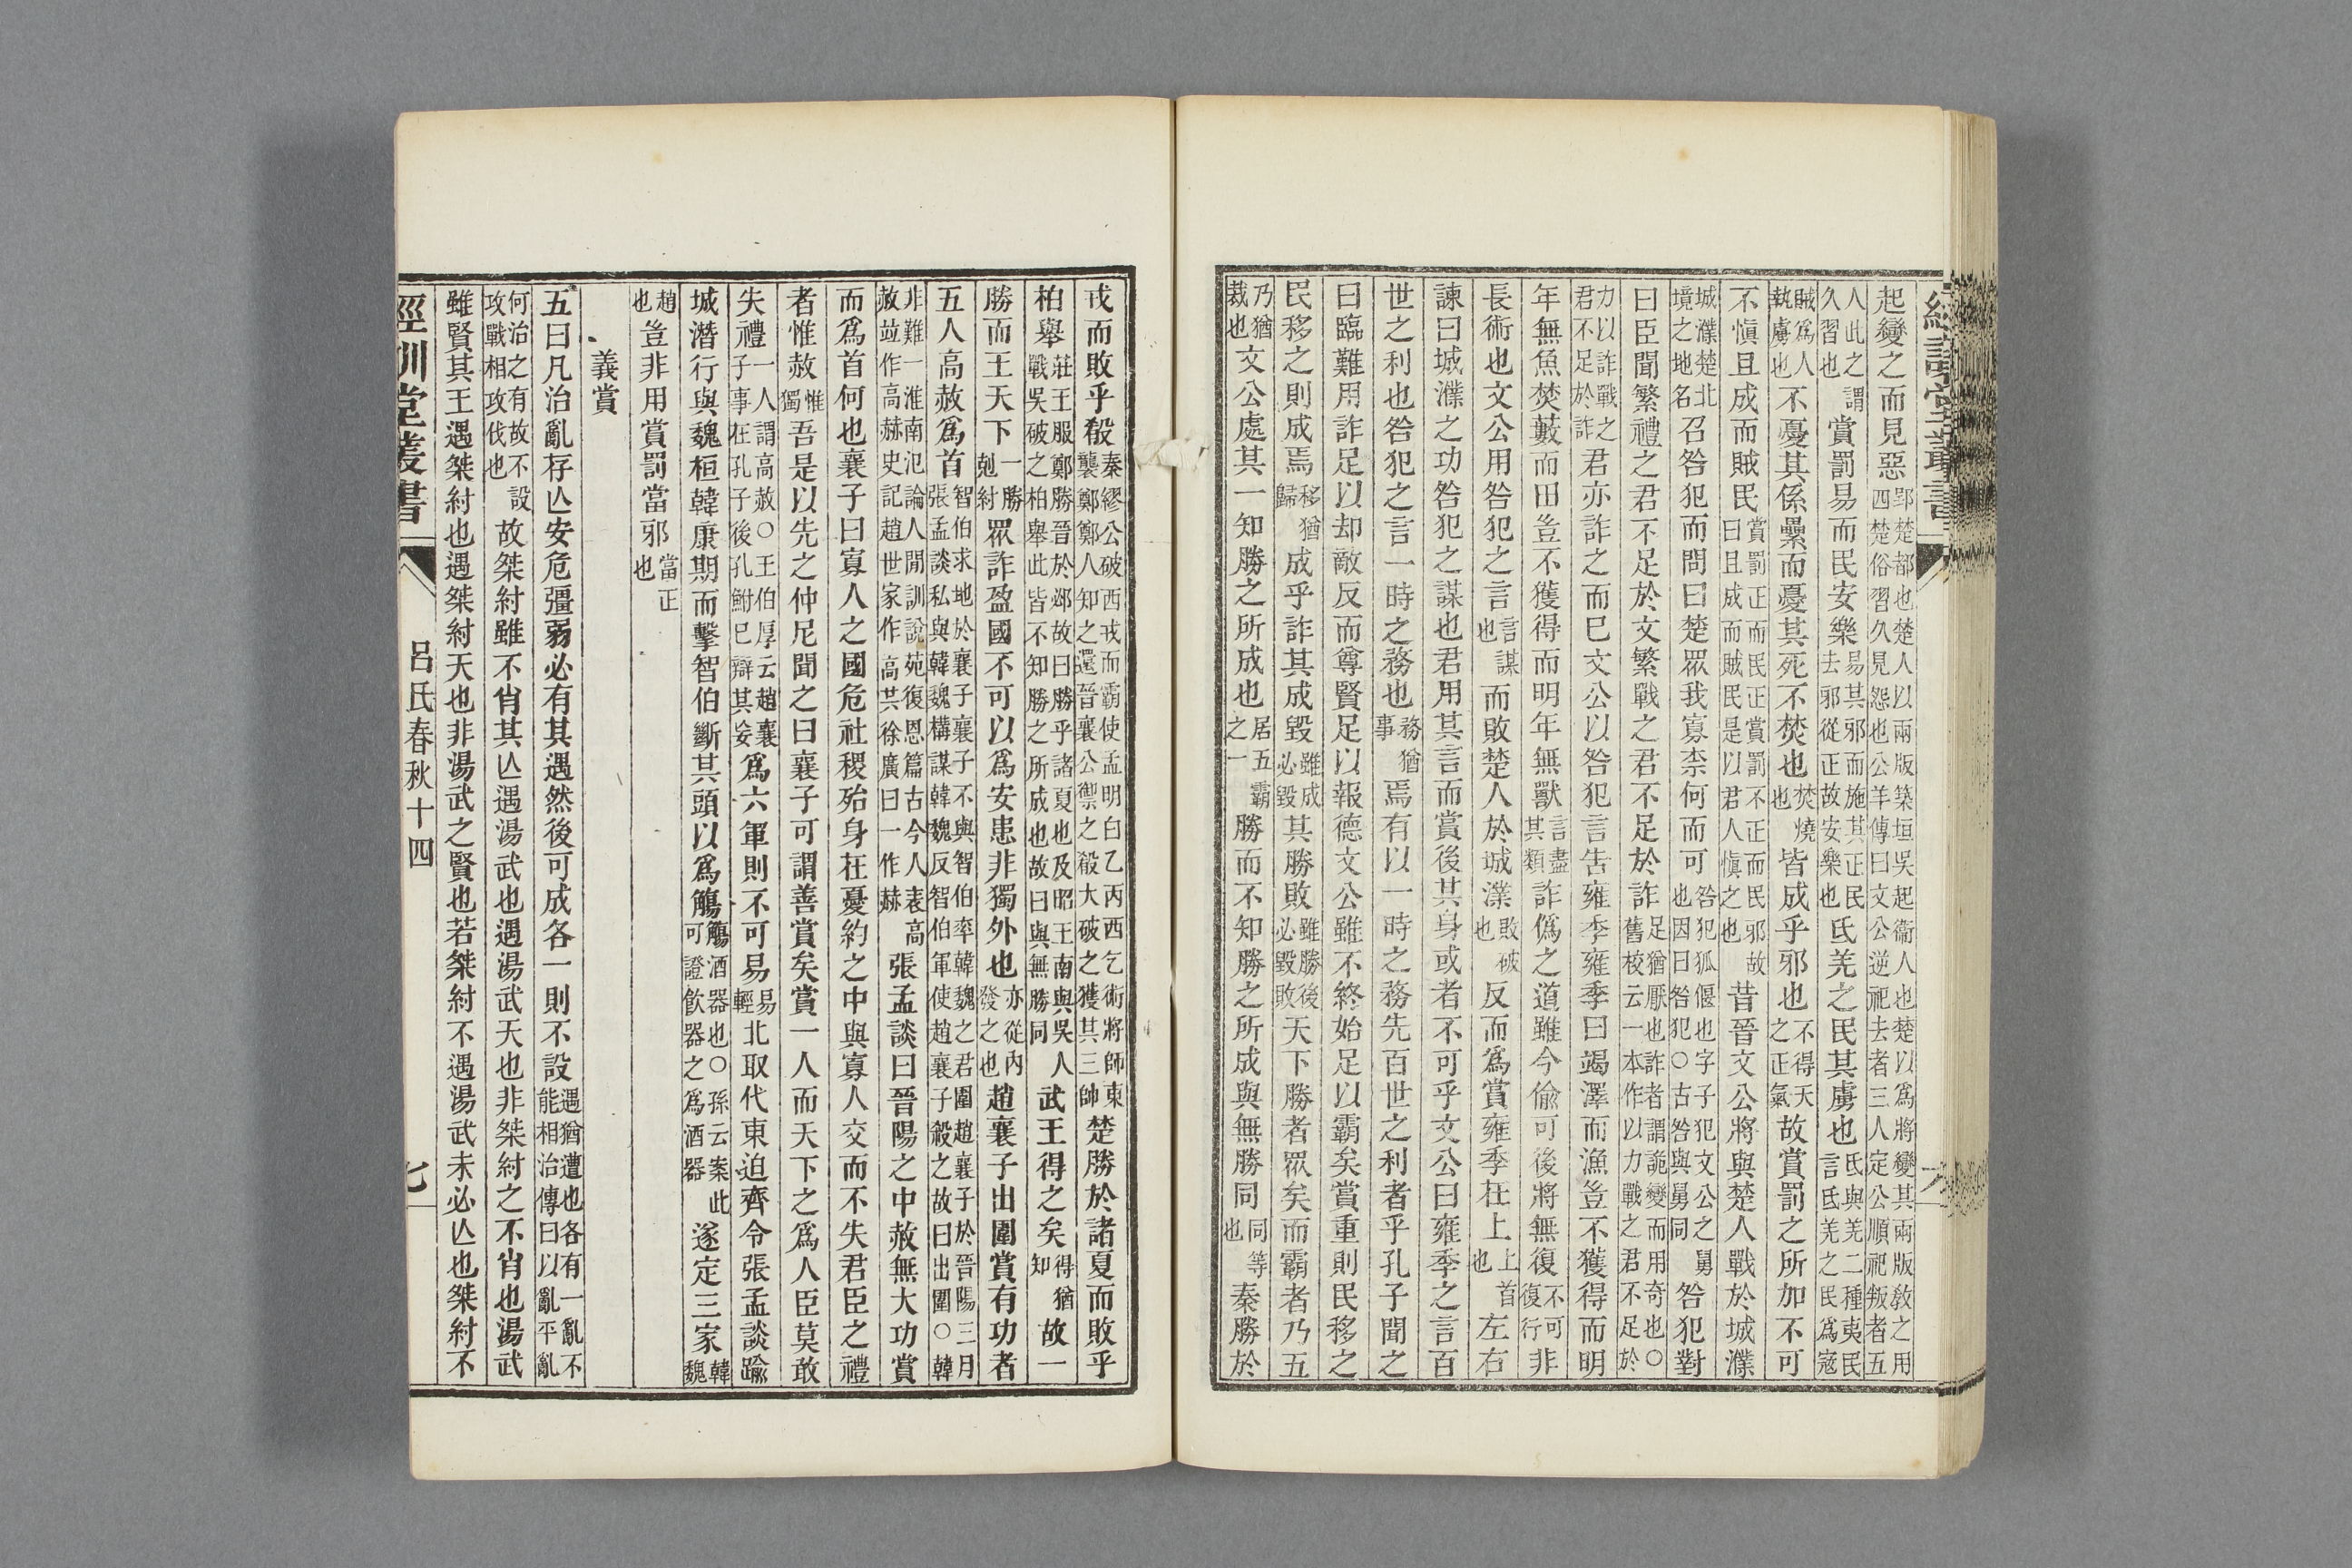 起變之而見惡郢楚都也楚人以兩版築垣吳起衞人也楚以爲將變其兩版敎之用四楚俗習久見怨也公羊傳曰文公逆祀去者三人定公順祀叛者五
人此之謂久習也賞罰易而民安樂易其邪而施其正民去邪從正故安樂也氐羌之民其虜也氐與羌二種夷民言氐羌之民爲寇
賊爲人執虜也不憂其係纍而憂其死不焚也焚燒也皆成乎邪也不得天之正氣故賞罰之所加不可
不愼且成而賊民賞罰正而民正賞罰不正而民邪故曰且成而賊民是以君人愼之也昔晉文公將與楚人戰於城濮
城濮楚北境之地名召咎犯而問曰楚眾我寡柰何而可咎犯狐偃也字子犯文公之舅也因曰咎犯○古咎與舅同咎犯對
曰臣聞繁禮之君不足於文繁戰之君不足於詐足猶厭也詐者謂詭變而用奇也○舊校云一本作以力戰之君不足於
力以詐戰之君不足於詐君亦詐之而巳文公以咎犯言吿雍季雍季曰竭澤而漁豈不獲得而明
年無魚焚藪而田豈不獲得而明年無獸言盡其類詐僞之道雖今偷可後將無復不可復行非
長術也文公用咎犯之言言謀也而敗楚人於城濮敗破也反而爲賞雍季在上上首也左右
諫曰城濮之功咎犯之謀也君用其言而賞後其身或者不可乎文公曰雍季之言百
世之利也咎犯之言一時之務也務猶事焉有以一時之務先百世之利者乎孔子聞之
曰臨難用詐足以却敵反而尊賢足以報德文公雖不終始足以霸矣賞重則民移之
民移之則成焉移猶歸成乎詐其成毀雖成必毀其勝敗雖勝後必毀敗天下勝者眾矣而霸者乃五
乃猶裁也文公處其一知勝之所成也居五霸之一勝而不知勝之所成與無勝同同等也秦勝於
戎而敗乎殽秦繆公破西戎而霸使孟明白乙丙西乞術將師東襲鄭鄭人知之還晉襄公禦之殽大破之獲其三帥楚勝於諸夏而敗乎
柏舉莊王服鄭勝晉於邲故曰勝乎諸夏也及昭王南與吳人戰吳破之柏舉此皆不知勝之所成也故曰與無勝同武王得之矣得猶知故一
勝而王天下一勝剋紂眾詐盈國不可以爲安患非獨外也亦從內發之也趙襄子出圍賞有功者
五人高赦爲首智伯求地於襄子襄子不與智伯率韓魏之君圍趙襄子於晉陽三月張孟談私與韓魏構謀韓魏反智伯軍使趙襄子殺之故曰出圍○韓
非難一淮南氾論人閒訓說苑復恩篇古今人表高赦竝作高赫史記趙世家作高共徐廣曰一作赫張孟談曰晉陽之中赦無大功賞
而爲首何也襄子曰寡人之國危社稷殆身在憂約之中與寡人交而不失君臣之禮
者惟赦惟獨吾是以先之仲尼聞之曰襄子可謂善賞矣賞一人而天下之爲人臣莫敢
失禮一人謂高赦○王伯厚云趙襄子事在孔子後孔鮒巳辯其妄爲六軍則不可易易輕北取代東迫齊令張孟談踰
城潛行與魏桓韓康期而擊智伯斷其頭以爲觴觴酒器也○孫云案此可證飮器之爲酒器遂定三家韓魏
趙也豈非用賞罰當邪當正也
義賞
五曰凡治亂存亾安危彊弱必有其遇然後可成各一則不設遇猶遭也各有一亂不能相治傳曰以亂平亂
何治之有故不設攻戰相攻伐也故桀紂雖不肖其亾遇湯武也遇湯武天也非桀紂之不肖也湯武
雖賢其王遇桀紂也遇桀紂天也非湯武之賢也若桀紂不遇湯武未必亾也桀紂不
經訓堂叢書
呂氏春秋十四
七